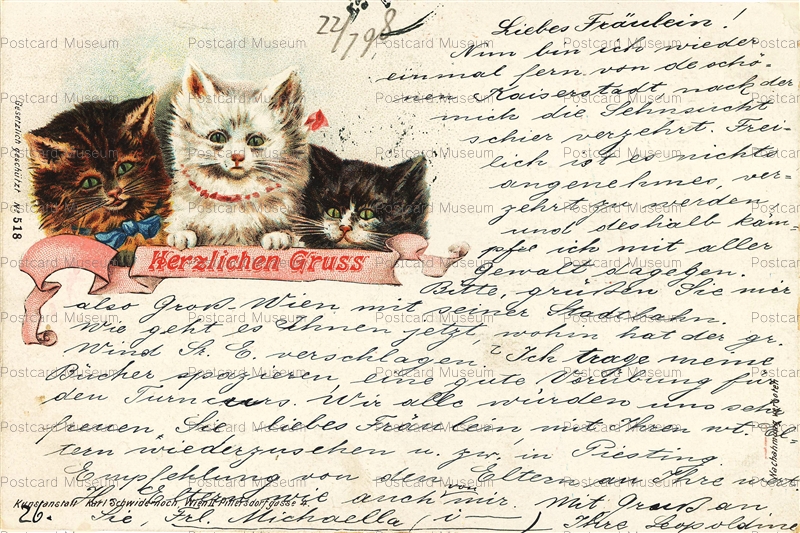 22/7 98
Liebes Fräulein!
Nun bin ich wieder
einmal fern von de schö-
nen Kaiserstadt nach der
mich die Sehnsucht
schier verzehrt. Frei-
lich ist es nichts
angenehmes, ver-
zehrt zu werden,
und deshalb käm-
pfe ich mit aller
Gewalt dagegen.
Herzlichen Gruss
Gesetzlich geschützt No 518
Bitte, grüßen Sie mir
also Groß-Wien mit seiner Stadtbahn.
Wie geht es Ihnen jetzt, wohin hat der gr.
Wind Sr. E. verschlagen? Ich trage meine
Bücher spazieren, eine gute Vorübung für
den Turncurs. Wir alle würden uns sehr
freuen Sie, liebes Fräulein mit Ihren wt.
tern wiederzusehen u. zw. in Piesting.
Empfehlung von den Eltern an Ihre wert.
auch von mir. Mit Gruß an
Kunstanstalt Karl Schwidernoch, Wien II
26. Sie, Frl. Michaella (i—) Ihre Leopoldine
Postcard Museum